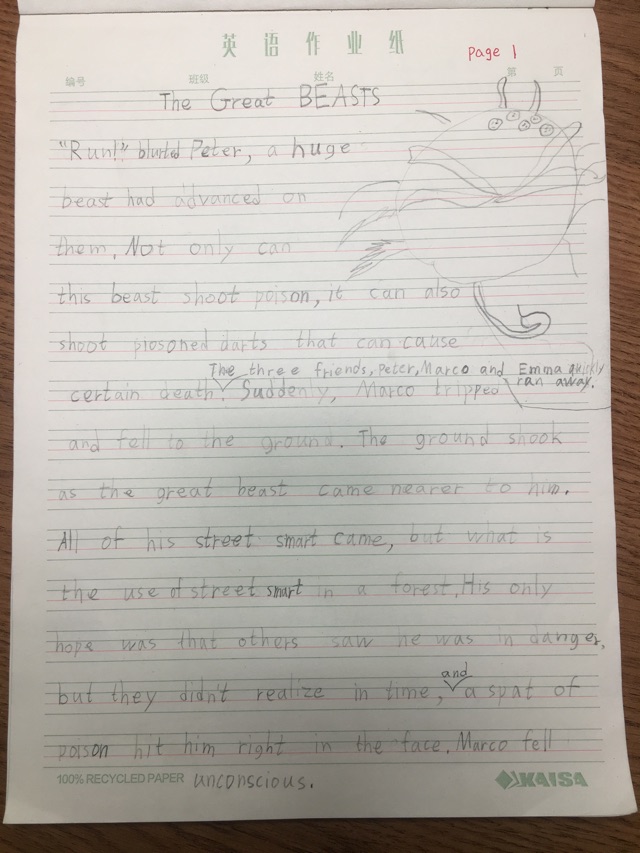 英语作业纸
page 1
编号 班级 姓名 第 页
The Great BEASTS
"Run!" blurted Peter, a huge
beast had advanced on
them, Not only can
this beast shoot poison, it can also
shoot piosoned darts that can cause
The three friends, Peter, Marco and Emma quickly
ran away.
certain death. Suddenly, Marco tripped
and fell to the ground. The ground shook
as the great beast came nearer to him.
All of his street smart came, but what is
the use of street smart in a forest, His only
hope was that others saw he was in danger,
and
but they didn't realize in time, a spat of
poison hit him right in the face. Marco fell
100% RECYCLED PAPER unconscious. KAISA